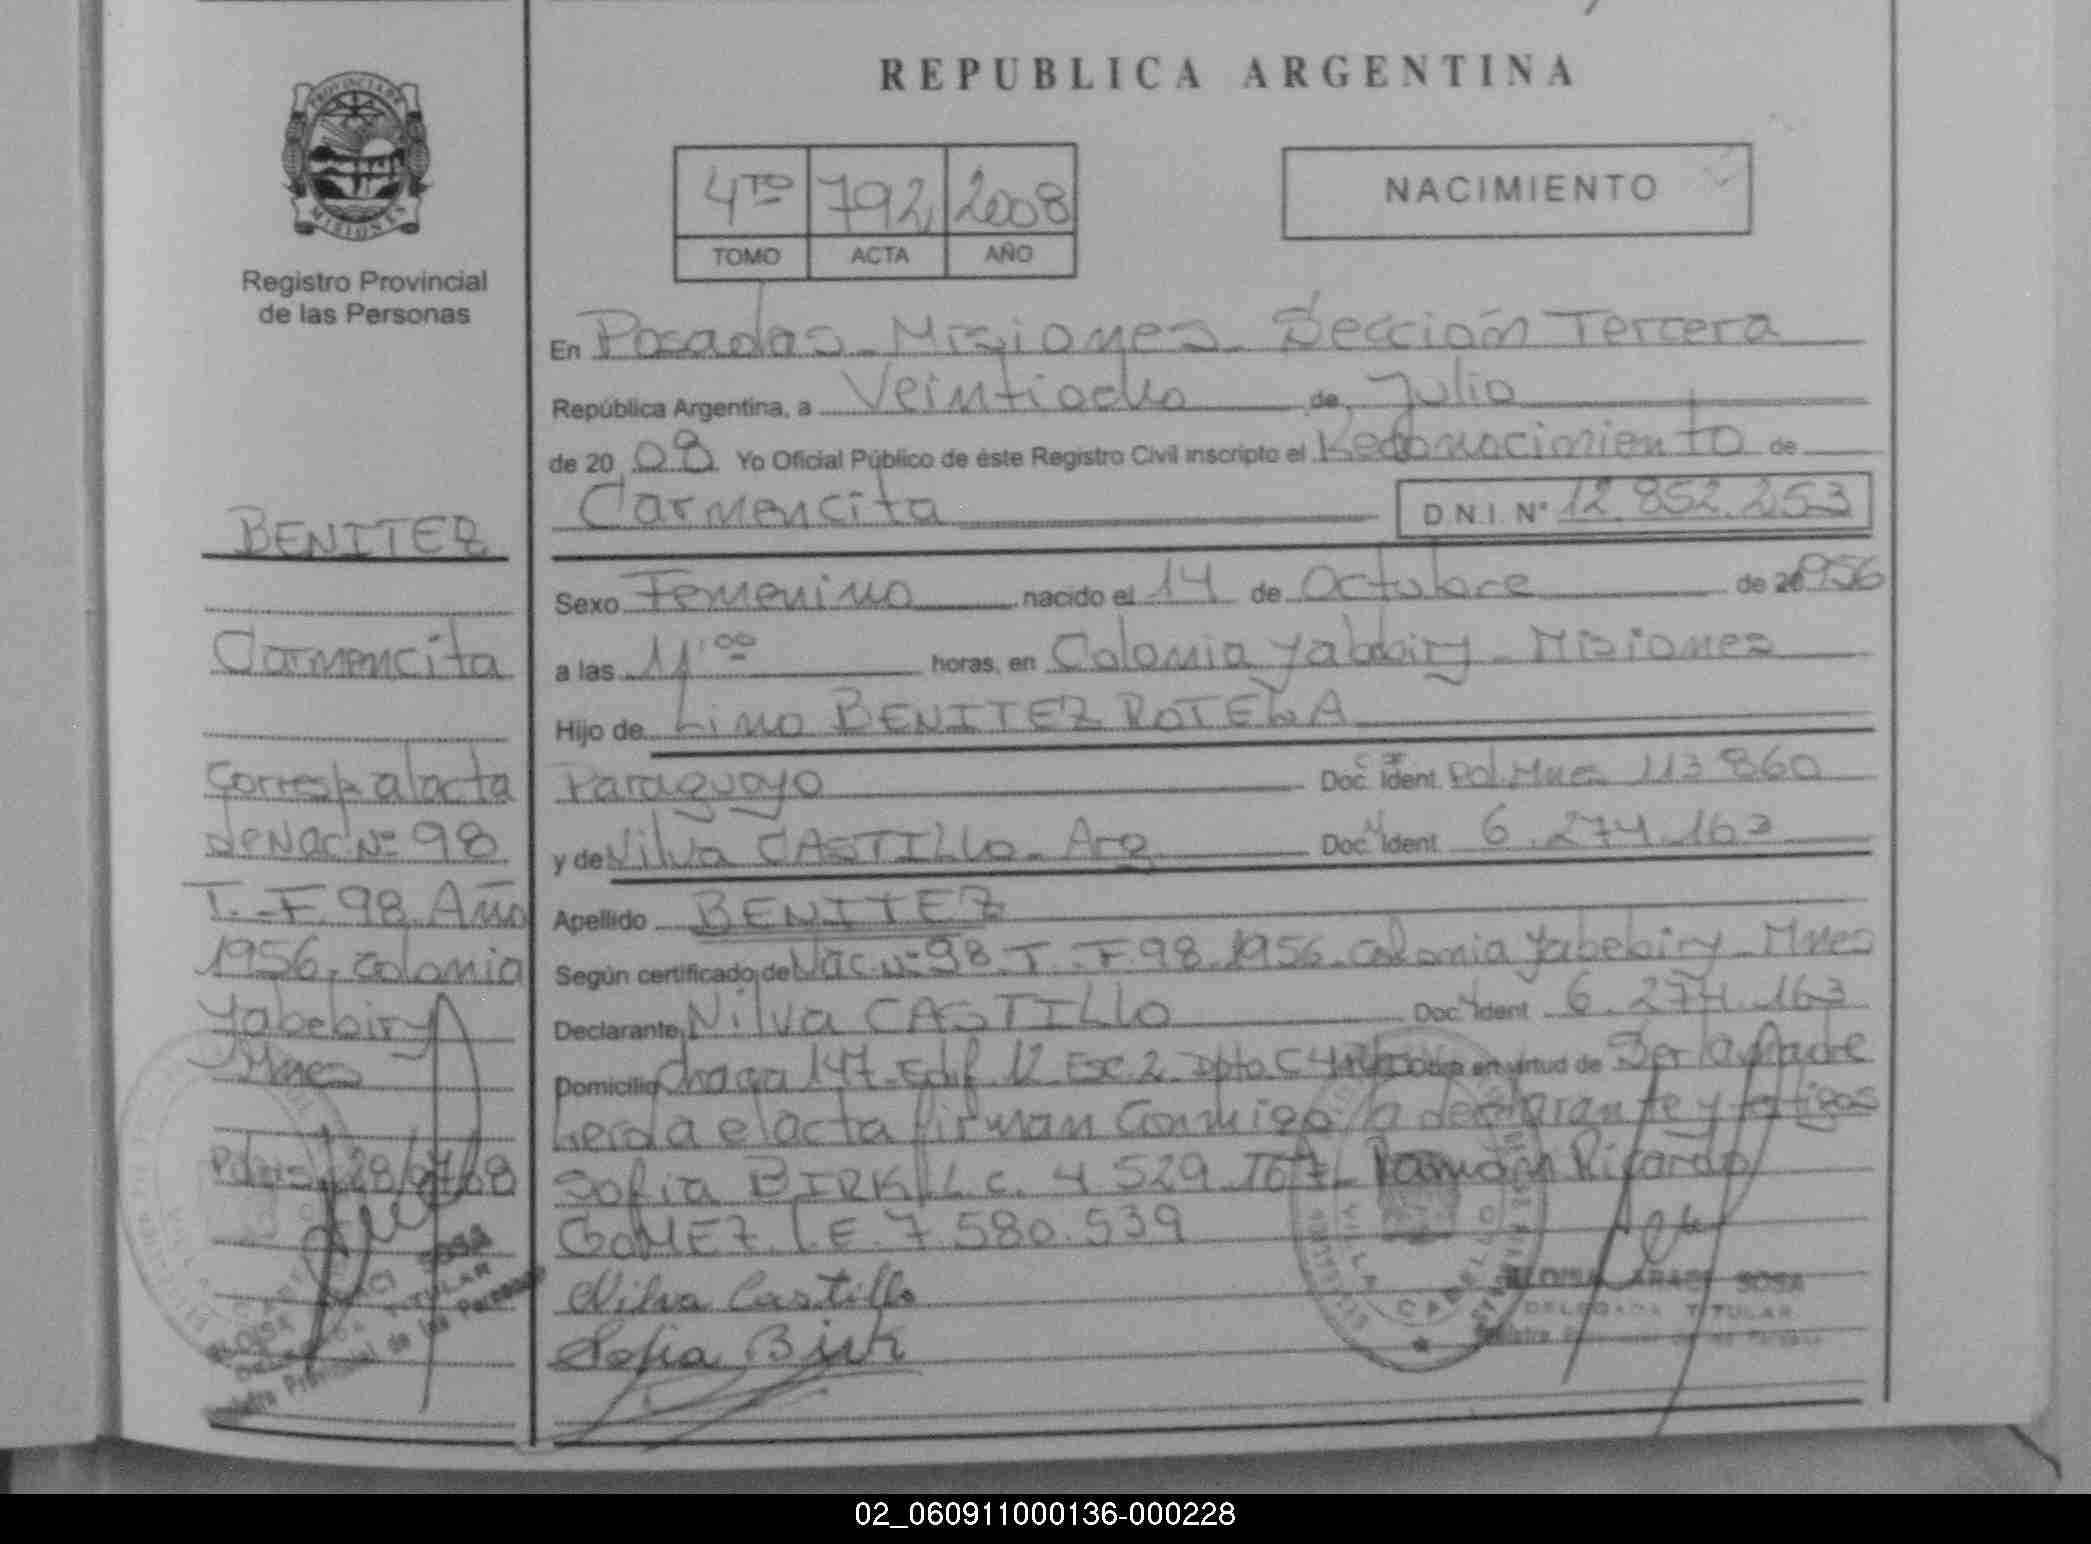 REPUBLICA ARGENTINA
PROVINCIA DE
MISIONES
Registro Provincial
de las Personas
4TO 792 2008
TOMO ACTA AÑO
NACIMIENTO
BENITEZ
Carmencita
Corresp a l acta
de Nac Nº 98
T. - F. 98 Año
1956, Colonia
Yabebiry
Mnes
Pdas, 28/07/08
En Posadas - Misiones - Sección Tercera
República Argentina, a Veintiocho de Julio
de 20 08 Yo Oficial Público de éste Registro Civil inscripto el Reconocimiento de
Carmencita D.N.I. Nº 12.852.253
Sexo Femenino nacido el 14 de Octubre de 1956
a las 11:00 horas, en Colonia Yabebiry - Misiones
Hijo de Lino BENITEZ ROTELA
Paraguayo Doc. Ident. Pol. Mnes 113.860
y de Nilva CASTILLO - Arg Doc. Ident. 6.274.163
Apellido BENITEZ
Según certificado de Nac. Nº 98. T. - F. 98. 1956. Colonia Yabebiry - Mnes
Declarante Nilva CASTILLO Doc. Ident. 6.274.163
Domicilio Chaca 147. Edif. 12 Esc. 2. Dpto C Obra en virtud de Ser la Madre
Leida el acta firman conmigo la declarante y testigos
Sofia BIRK L.C. 4.529.167 Ramón Ricardo
GOMEZ L.E. 7.580.539
Nilva Castillo
Sofia Birk
ELOISA ARACI SOSA
DELEGADA TITULAR
Registro Provincial de las Personas
02_060911000136-000228